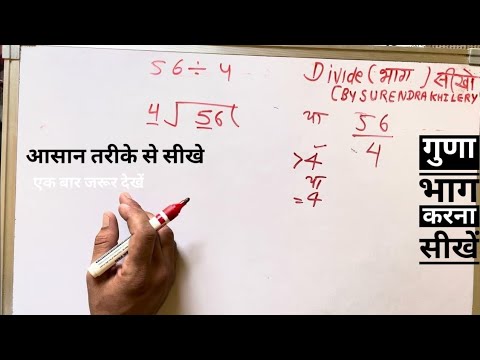 56÷4
Divide (भाग) सीखो
(BY SURENDRA KHILERY)
4√56(
या 56/4
>4
या
=4
आसान तरीके से सीखे
एक बार जरूर देखें
गुणा
भाग
करना
सीखें